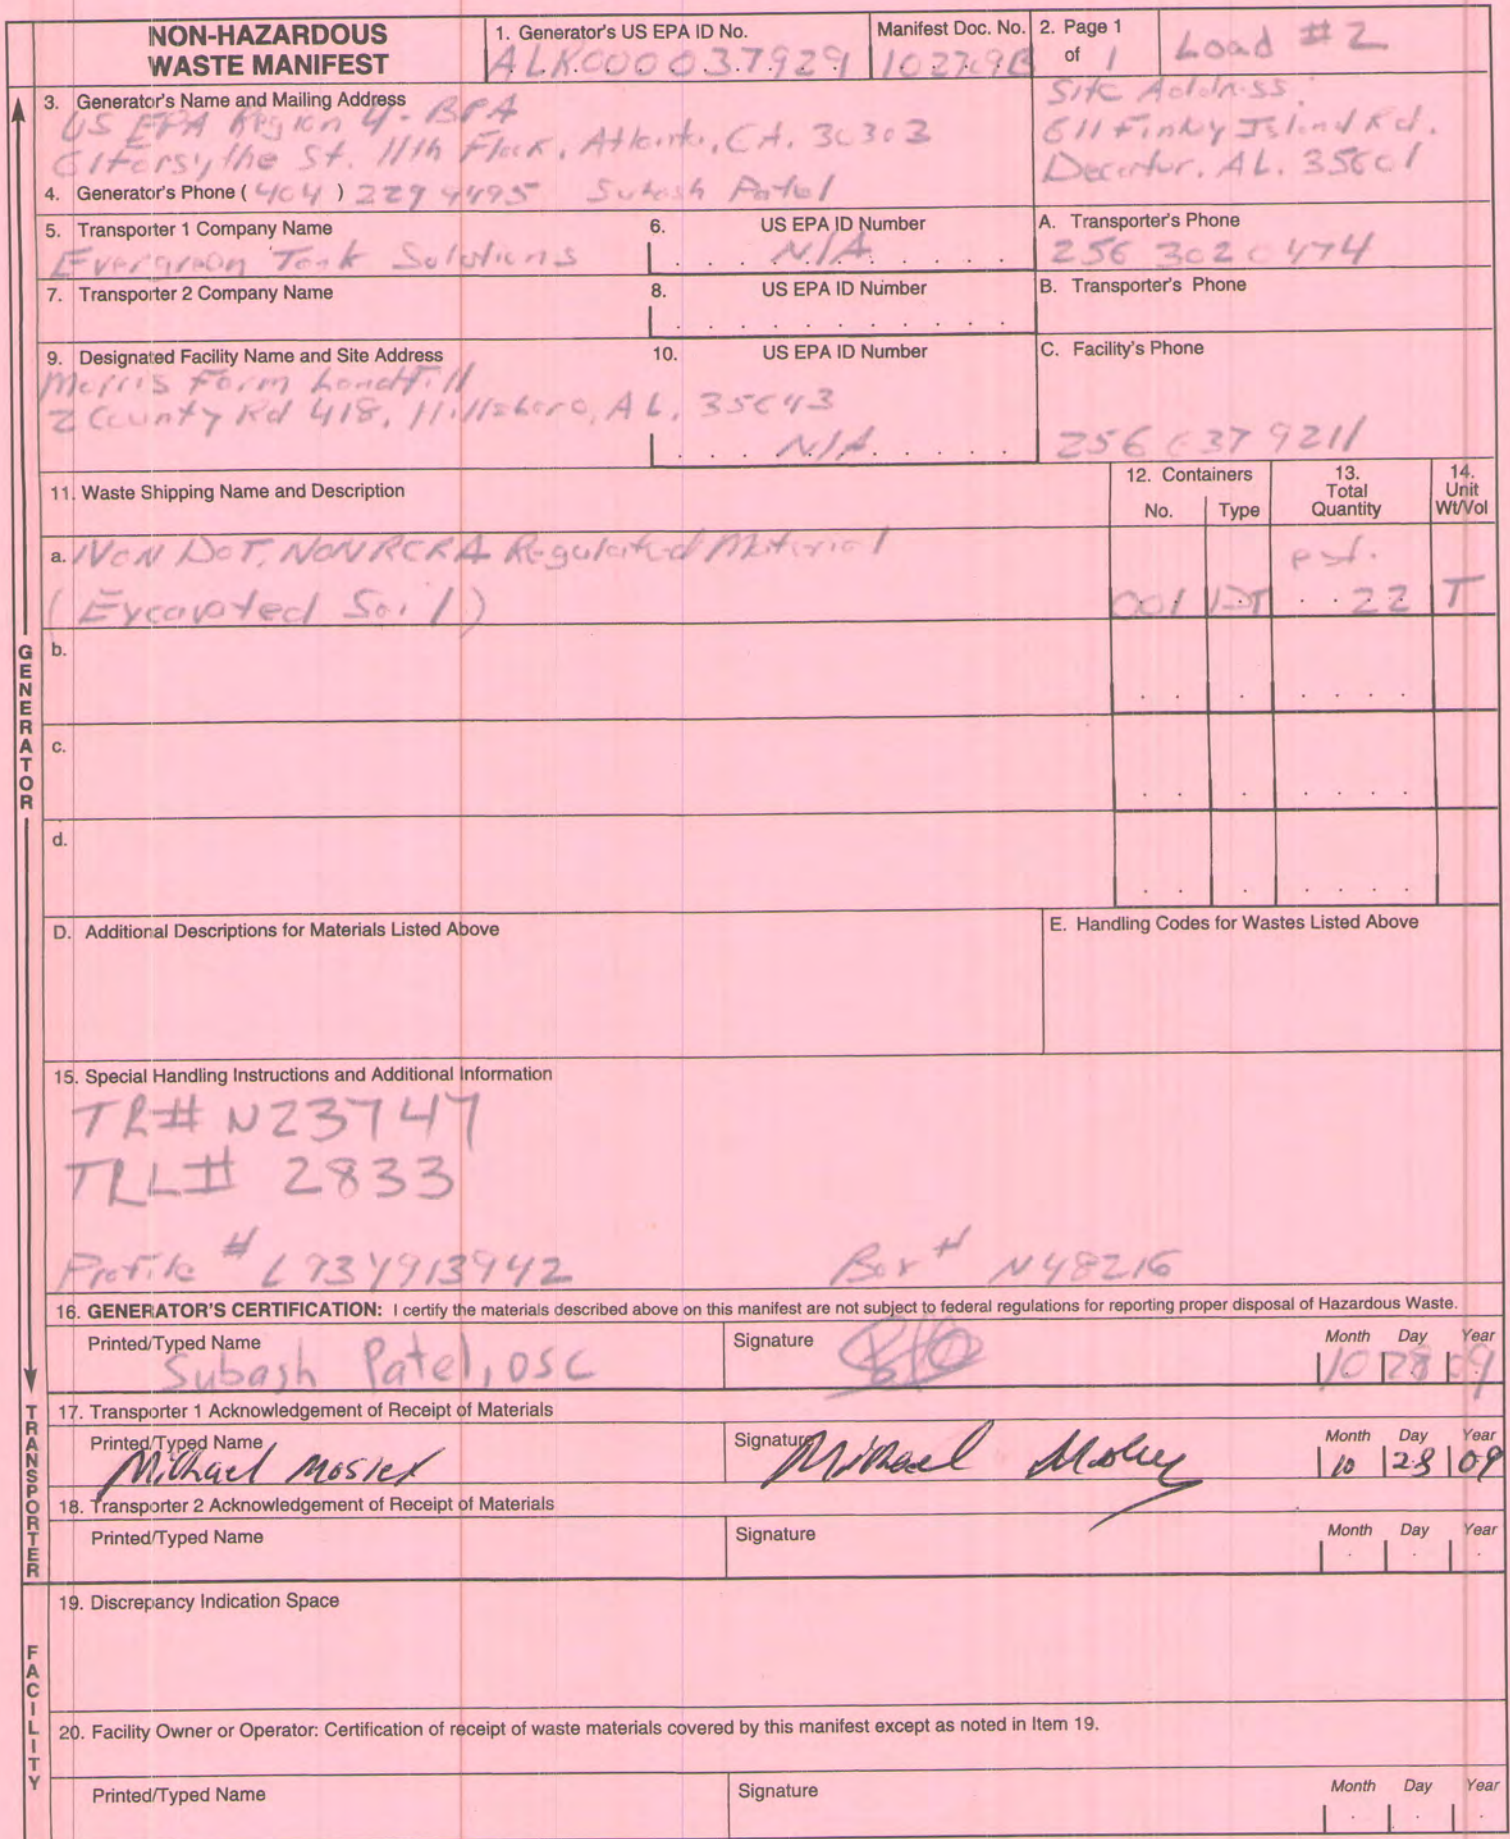 NON-HAZARDOUS
WASTE MANIFEST
1. Generator's US EPA ID No.
ALR000037929
Manifest Doc. No.
102709B
2. Page 1
of 1
Load #2
3. Generator's Name and Mailing Address
US EPA Region 4 - BFA
61 Forsythe St. 11th Floor, Atlanta, GA. 30303
Site Address:
611 Finley Island Rd.
Decatur, AL. 35601
4. Generator's Phone ( 404 ) 229 9495 Subash Patel
5. Transporter 1 Company Name
Evergreen Tank Solutions
6. US EPA ID Number
N/A
A. Transporter's Phone
256 302 0474
7. Transporter 2 Company Name
8. US EPA ID Number
B. Transporter's Phone
9. Designated Facility Name and Site Address
Morris Farm Landfill
2 County Rd 418, Hillsboro, AL, 35643
10. US EPA ID Number
N/A
C. Facility's Phone
256 637 9211
11. Waste Shipping Name and Description
12. Containers
No.
Type
13.
Total
Quantity
14.
Unit
Wt/Vol
a. NON DOT, NON RCRA Regulated Material
(Excavated Soil)
est.
001 DT 22 T
b.
c.
d.
GENERATOR
D. Additional Descriptions for Materials Listed Above
E. Handling Codes for Wastes Listed Above
15. Special Handling Instructions and Additional Information
TR# N23747
TRL# 2833
Profile # L934913942 Box # N48216
16. GENERATOR'S CERTIFICATION: I certify the materials described above on this manifest are not subject to federal regulations for reporting proper disposal of Hazardous Waste.
Printed/Typed Name
Subash Patel, OSC
Signature
Month Day Year
10 28 09
TRANSPORTER
17. Transporter 1 Acknowledgement of Receipt of Materials
Printed/Typed Name
Michael Mosley
Signature
Michael Mosley
Month Day Year
10 28 09
18. Transporter 2 Acknowledgement of Receipt of Materials
Printed/Typed Name
Signature
Month Day Year
FACILITY
19. Discrepancy Indication Space
20. Facility Owner or Operator: Certification of receipt of waste materials covered by this manifest except as noted in Item 19.
Printed/Typed Name
Signature
Month Day Year